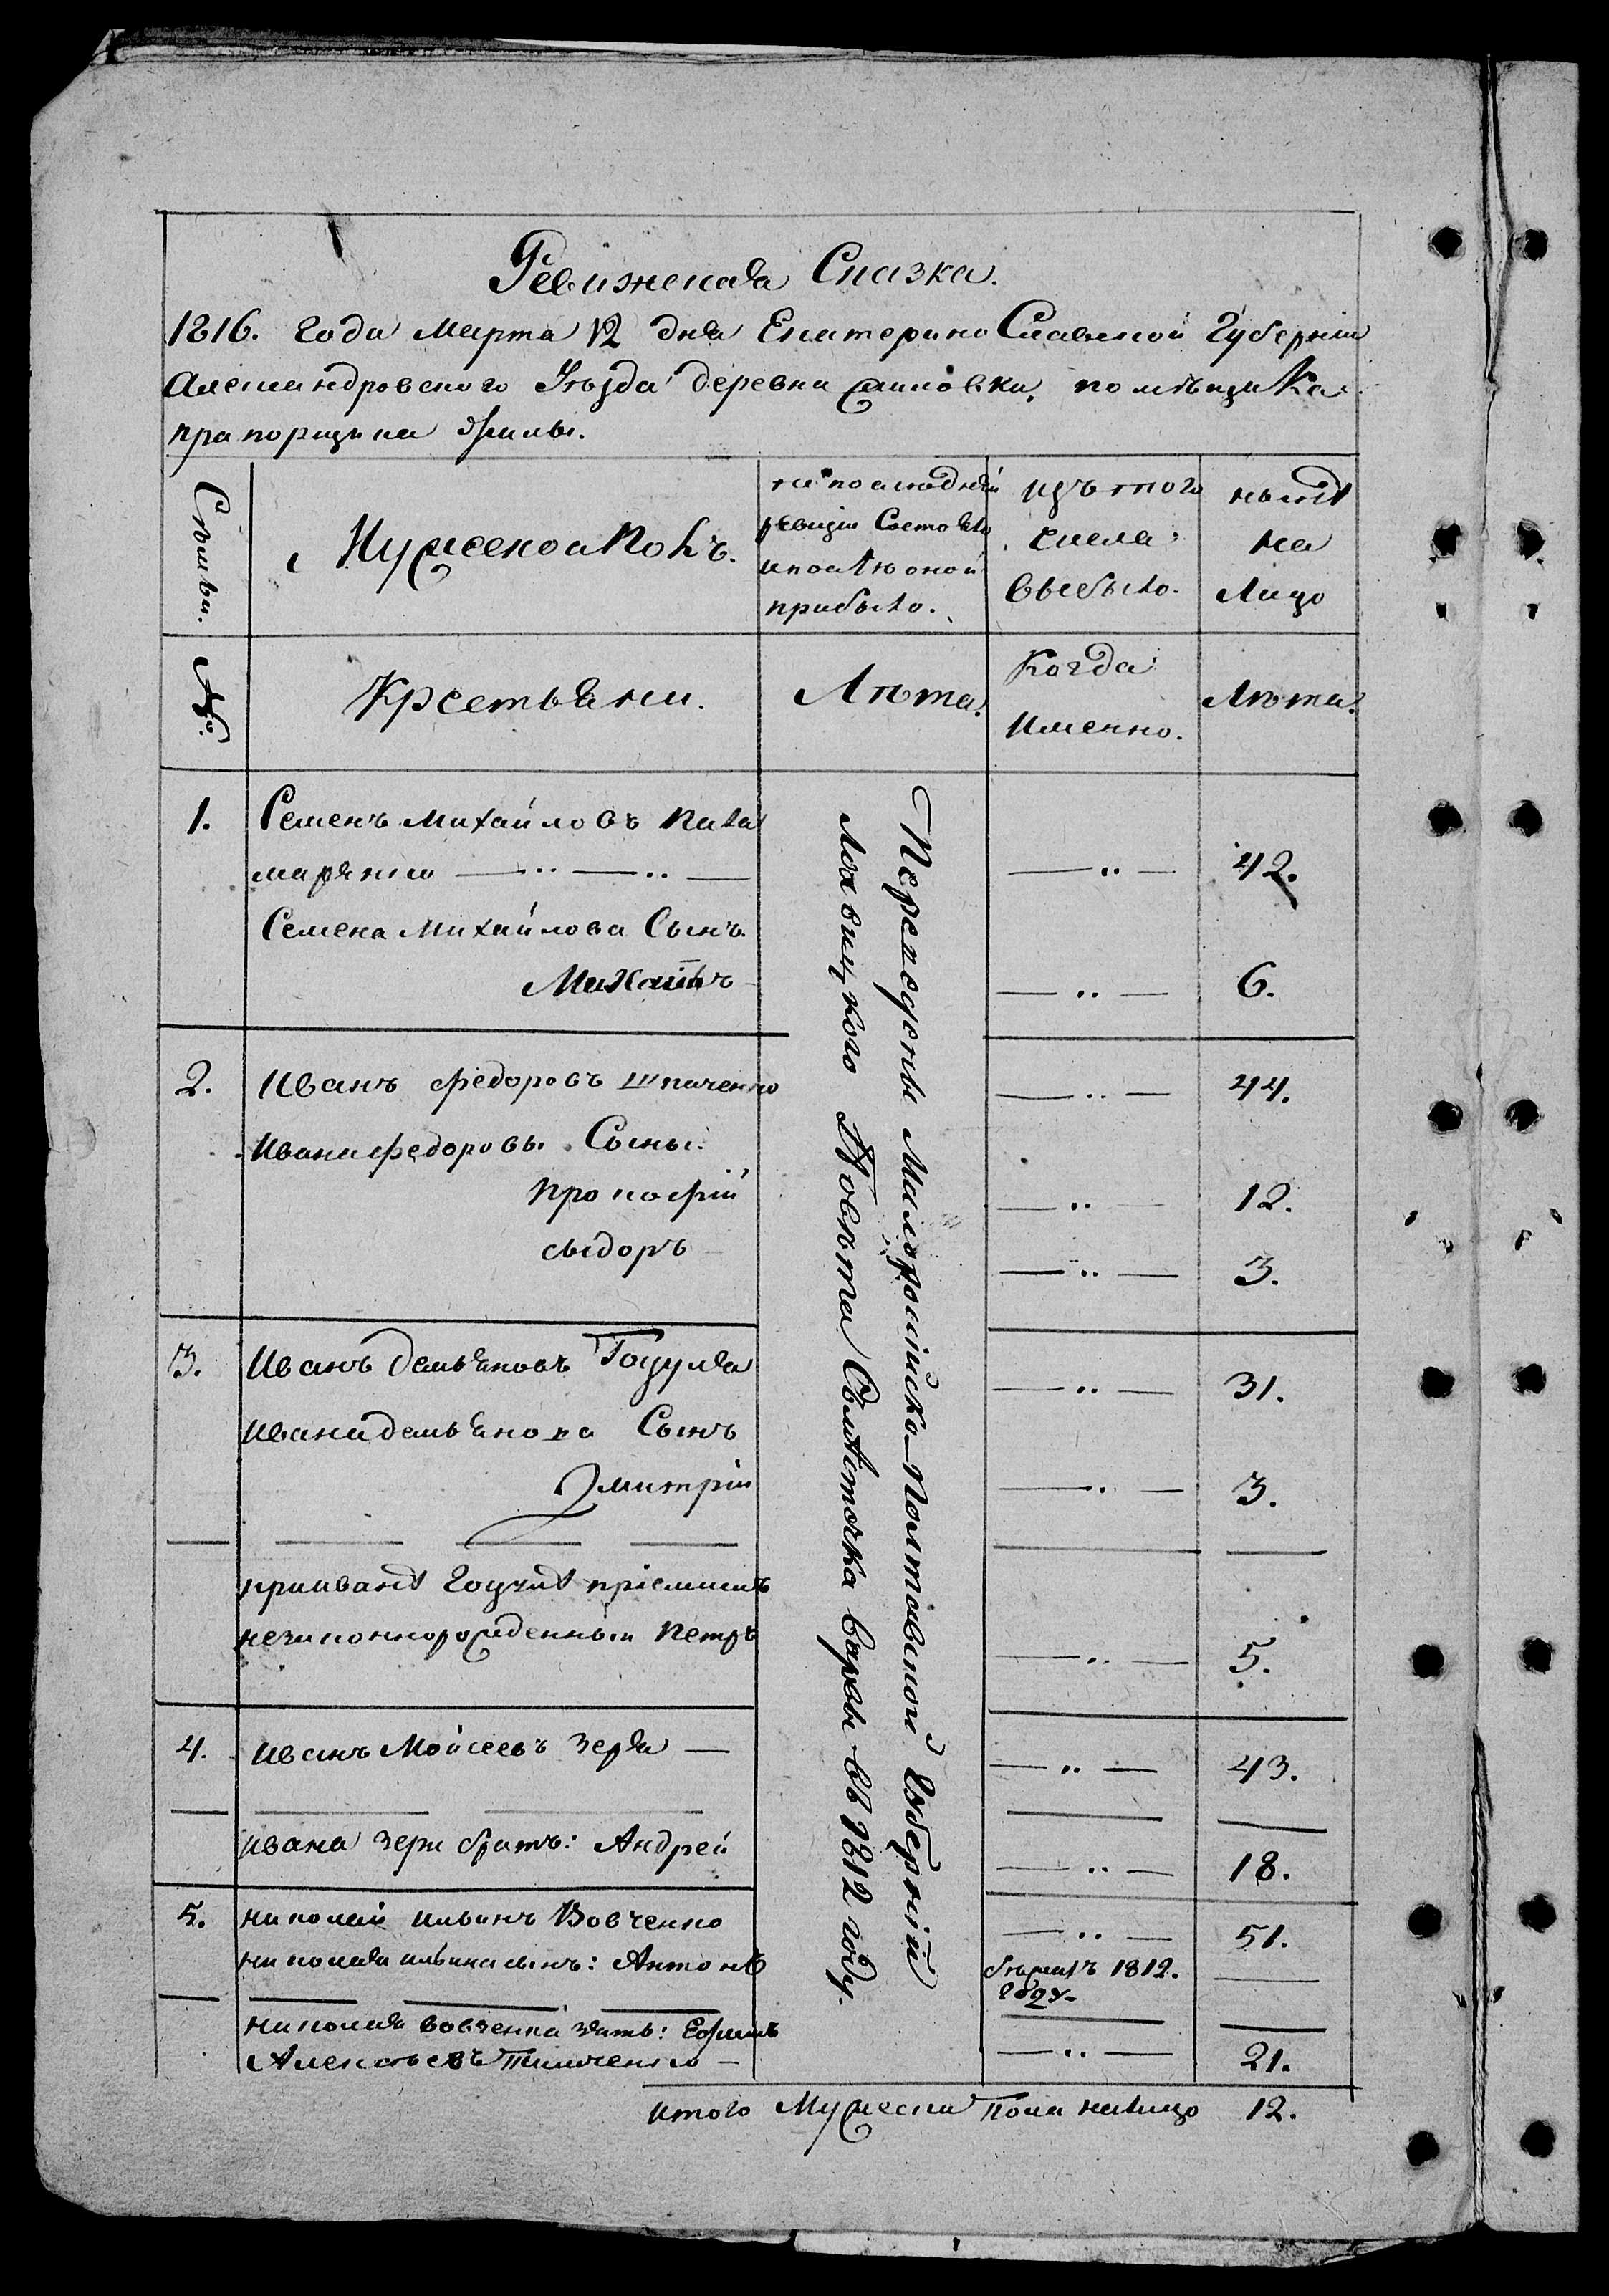 Ревижская Сказка.
1816. года Марта 12 дня Екатерино Славской Губерніи
Александровского Уѣзда деревни помѣщика
прапорщика
Семьи.
Мужеска полъ.
по последней
ревизіи Состояло
и после оной
прибыло.
изъ того
числа
выбыло.
нынѣ
на
Лицо
№.
Крестьяни.
Лѣта.
Когда
именно.
Лѣта.
Переведены Малороссійско-Полтавской Губерніи
Повѣта в 1812 году.
1. Семенъ Михайловъ Пала
маренко — „ — „ — — „ — 42.
Семена Михайлова Сынъ
Михайлъ — „ — 6.
2. Иванъ Федоровъ Шпаченко — „ — 44.
Ивана Федоровы Сыны:
Прокофій — „ — 12.
сыдоръ — „ — 3.
3. Иванъ демьяновъ Гоцуля — „ — 31.
ивана демьянова Сынъ
Дмитрій — „ — 3.
при иване Гоцуле пріемышъ
незаконнорожденный Петръ — „ — 5.
4. иванъ Мойсеевъ Зеря — — „ — 43.
ивана Зери братъ: Андрей — „ — 18.
5. николай ильинъ Вовченко — „ — 51.
николая ильина сынъ: Антонъ бѣжалъ 1812.
году
николая вовченка зять: Ефимъ
Алексѣевъ Тимченко — — „ — 21.
итого Мужеска Пола налицо 12.